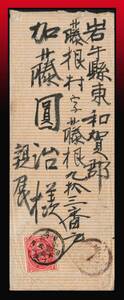 岩手縣東和賀郡
藤根村字藤根九拾三番戸
加藤圓治様
親展